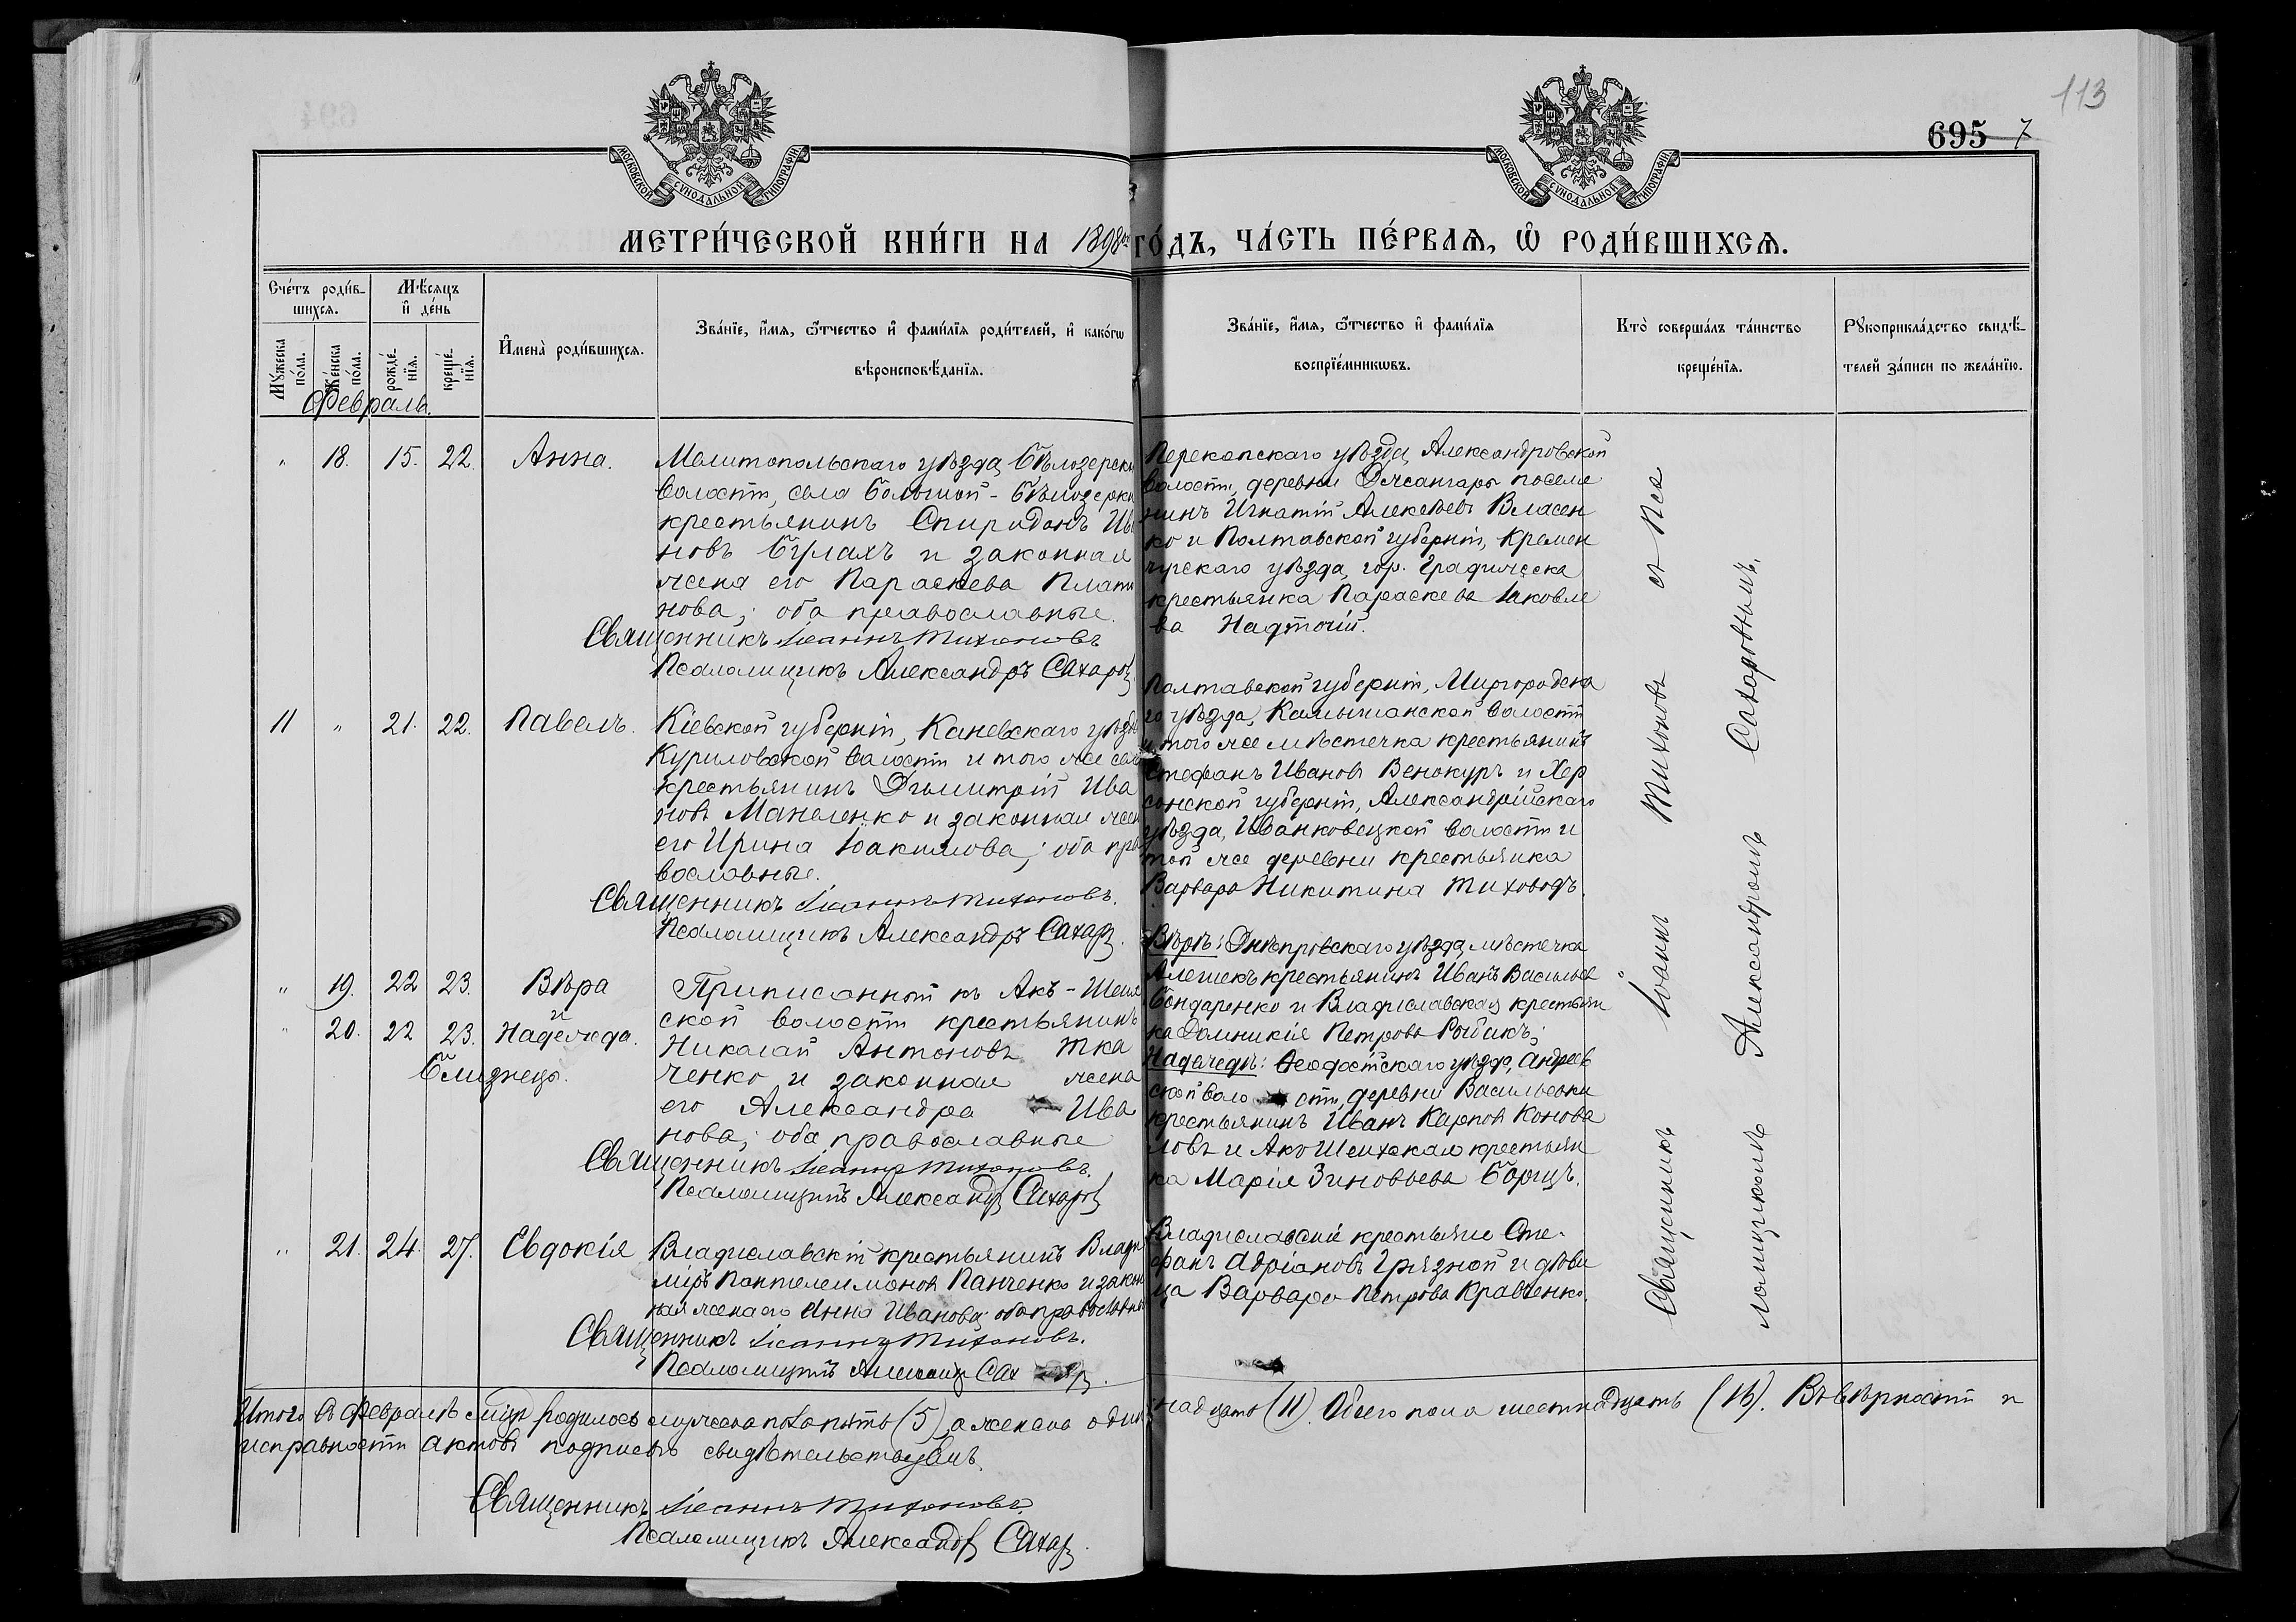 113
695 7
МОСКОВСКОЙ СѴНОДАЛЬНОЙ ТИПОГРАФІИ
МОСКОВСКОЙ СѴНОДАЛЬНОЙ ТИПОГРАФІИ
МЕТРИ́ЧЕСКОЙ КНИ́ГИ НА 1898 ГО́ДЪ, ЧА́СТЬ ПЕ́РВАѦ, Ѡ҆ РОДИ́ВШИХСѦ.
Сче́тъ роди́в-
шихсѧ.
Мѣ́сѧцъ
и҆ де́нь
Мꙋ́жеска
по́ла.
Же́нска
по́ла.
рожде́-
нїѧ.
креще́-
нїѧ.
И҆мена̀ роди́вшихсѧ.
Зва́нїе, и҆́мѧ, ѻ҆́тчество и҆ фами́лїѧ роди́телей, и҆ како́гѡ
вѣроисповѣ́данїѧ.
Зва́нїе, и҆́мѧ, ѻ҆́тчество и҆ фами́лїѧ
воспрїе́мникѡвъ.
Кто̀ соверша́лъ та́инство
креще́нїѧ.
Рꙋкоприкла́дство свидѣ́-
телей за́писи по жела́нїю.
Февраль.
" 18. 15. 22. Анна.
Мелитопольскаго уѣзда, Бѣлозерско
волости, села Большой-Бѣлозерки
крестьянинъ Спиридонъ Ива
новъ Булахъ и законная
жена его Параскева Плато
нова; оба православные.
Священникъ Іоаннъ Тихоновъ
Псаломщикъ Александръ Сахаровъ
Перекопскаго уѣзда, Александровской
волости, деревни Джангары поселя
нинъ Игнатій Алексѣевъ Власен
ко и Полтавской губерніи, Кремен
чугскаго уѣзда, гор. Градижска
крестьянка Параскева Іаковле
ва Надточій.
11 " 21. 22. Павелъ.
Кіевской губерніи, Каневскаго уѣзда
Куриловской волости и того же села
крестьянинъ Димитрій Ива
новъ Маноленко и законная жена
его Ирина Іоакимова; оба пра
вославные.
Священникъ Іоаннъ Тихоновъ.
Псаломщикъ Александръ Сахаровъ.
Полтавской губерніи, Миргородска
го уѣзда, Камышанской волости
и того же мѣстечка крестьянинъ
Стефанъ Ивановъ Венокуръ и Хер
сонской губерніи, Александрійскаго
уѣзда, Иванковецкой волости и
той же деревни крестьянка
Варвара Никитина Тиховодъ.
" 19. 22 23. Вѣра
и
" 20. 22 23. Надежда.
Близнецы.
Приписанный къ Акъ-Шеих
ской волости крестьянинъ
Николай Антоновъ Тка
ченко и законная жена
его Александра Ива
нова; оба православные
Священникъ Іоаннъ Тихоновъ.
Псаломщикъ Александръ Сахаровъ
Вѣрѣ: Днѣпровскаго уѣзда, мѣстечка
Алешекъ крестьянинъ Иванъ Васильев
Бондаренко и Владиславская крестьян
ка Домникія Петрова Рыбикъ;
Надеждѣ: Ѳеодосійскаго уѣзда, Андреев
ской воло сти, деревни Васильевки
крестьянинъ Иванъ Карповъ Конова
ловъ и Акъ Шеихская крестьян
ка Марія Зиновьева Борщъ.
" 21. 24. 27. Евдокія
Владиславскій крестьянинъ Влади
міръ Пантелеимоновъ Панченко и закон
ная жена его Анна Иванова; оба православные
Священникъ Іоаннъ Тихоновъ.
Псаломщикъ Александръ Сах ровъ.
Владиславскіе крестьяне Сте-
фанъ Адріановъ Грязной и дѣви
ца Варвара Петрова Кравченко.
Священникъ Іоаннъ Тихоновъ съ Пса
ломщикомъ Александромъ Сахаровымъ.
Итого въ Февралѣ мцѣ родилось мужеска пола пять (5), а женска один
надцать (11). Обоего пола шестнадцать (16). Въ вѣрности и
исправности актовъ подписью свидѣтельствуемъ.
Священникъ Іоаннъ Тихоновъ.
Псаломщикъ Александръ Сахаровъ.